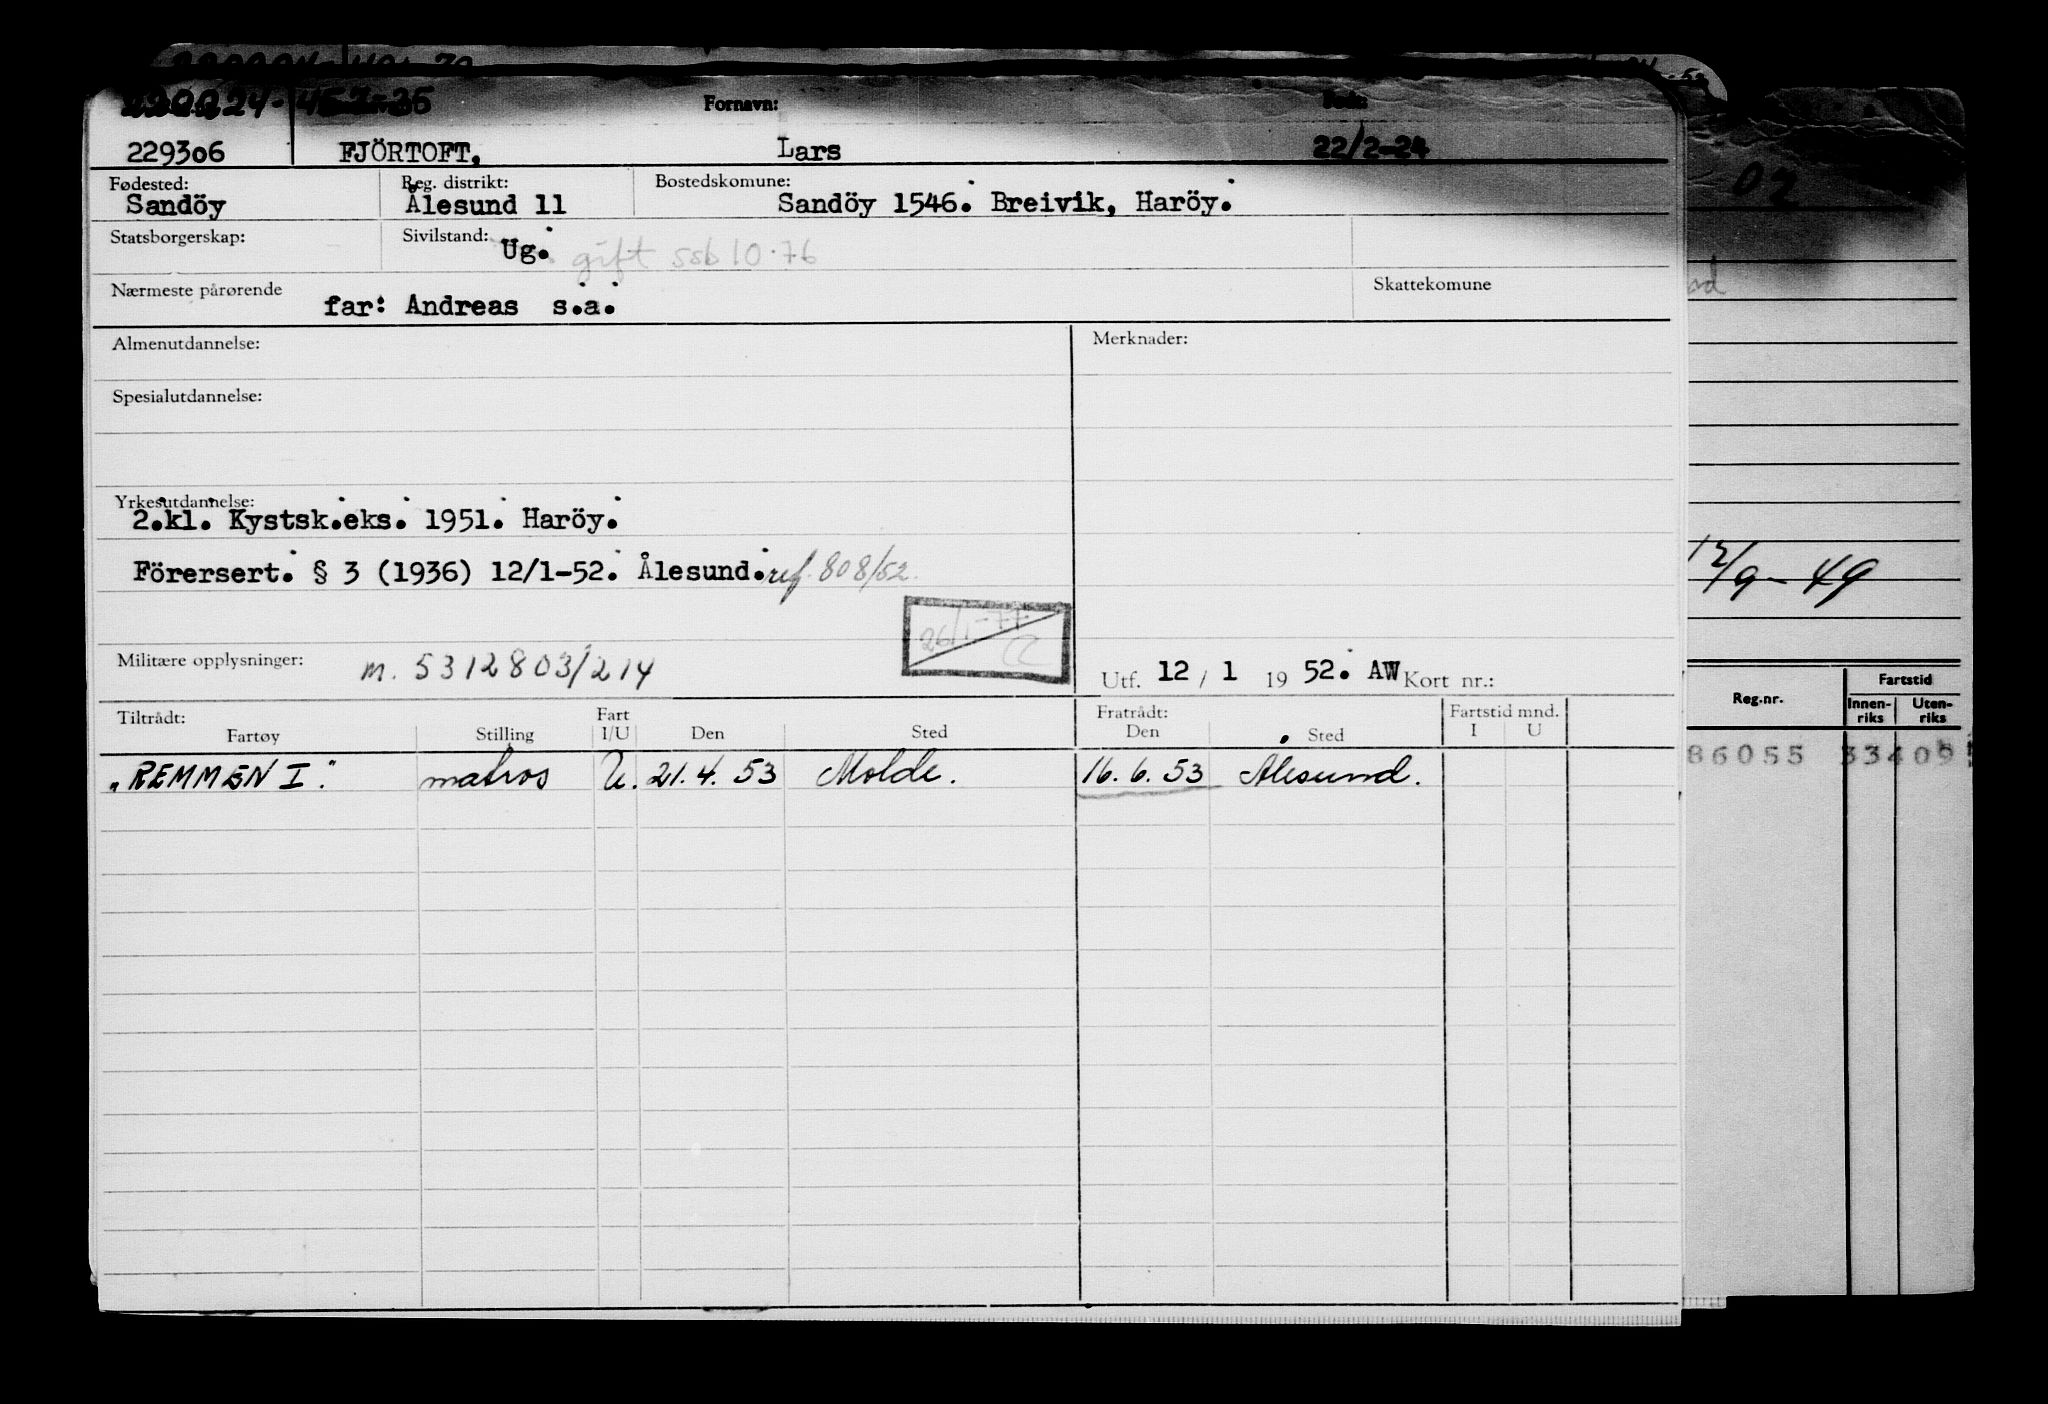 220224
Fornavn:
Født:
229306 FJÖRTOFT, Lars 22/2-24
Fødested: Reg. distrikt: Bostedskomune:
Sandöy Ålesund 11 Sandöy 1546. Breivik, Haröy.
Statsborgerskap: Sivilstand:
Ug. gift ssb 10.76
Nærmeste pårørende Skattekomune
far: Andreas s.a.
Almenutdannelse: Merknader:
Spesialutdannelse:
Yrkesutdannelse:
2.kl. Kystsk.eks. 1951. Haröy.
Förersert. § 3 (1936) 12/1-52. Ålesund. ref. 808/52.
26/1-77
Militære opplysninger: m. 5312803/214
Utf. 12 / 1 19 52. AW Kort nr.:
Tiltrådt: Fart Fratrådt: Fartstid mnd.
Fartøy Stilling I/U Den Sted Den Sted I U
"REMMEN I." matros U. 21.4.53 Molde. 16.6.53 Ålesund.
02
12/9-49
Reg.nr. Fartstid
Innen-riks Uten-riks
86055 334